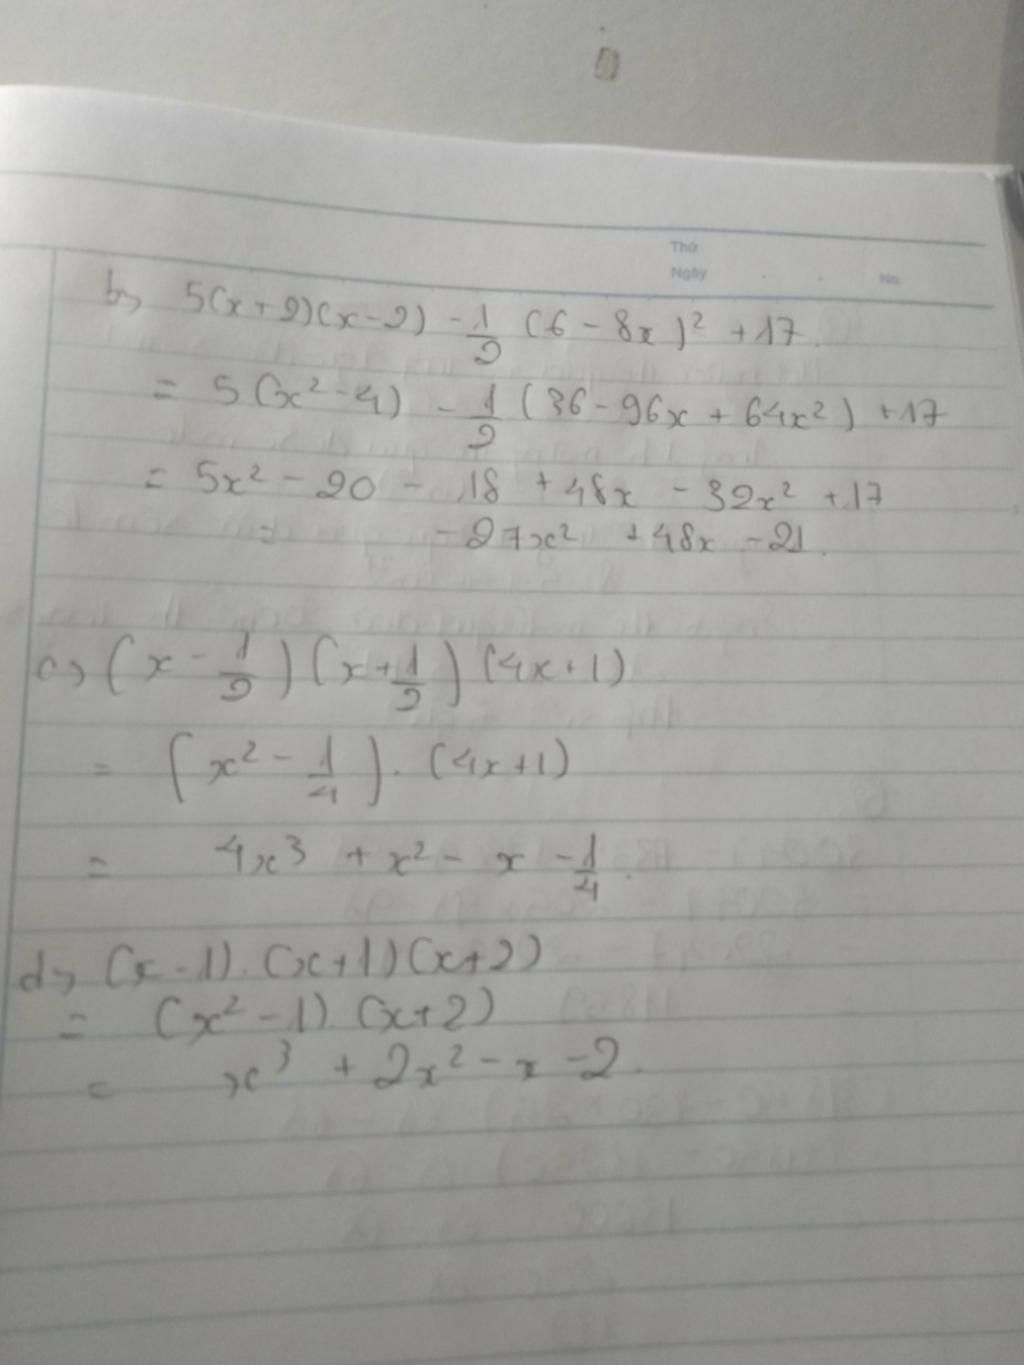 Thứ
Ngày . . No.
b, 5(x+2)(x-2) - 1/2 (6 - 8x)² + 17.
= 5(x² - 4) - 1/2 (36 - 96x + 64x²) + 17
= 5x² - 20 - 18 + 48x - 32x² + 17
= - 27x² + 48x - 21.
c, (x - 1/2)(x + 1/2)(4x + 1)
= (x² - 1/4).(4x+1)
= 4x³ + x² - x - 1/4.
d, (x - 1).(x+1)(x+2)
= (x² - 1).(x+2)
= x³ + 2x² - x - 2.